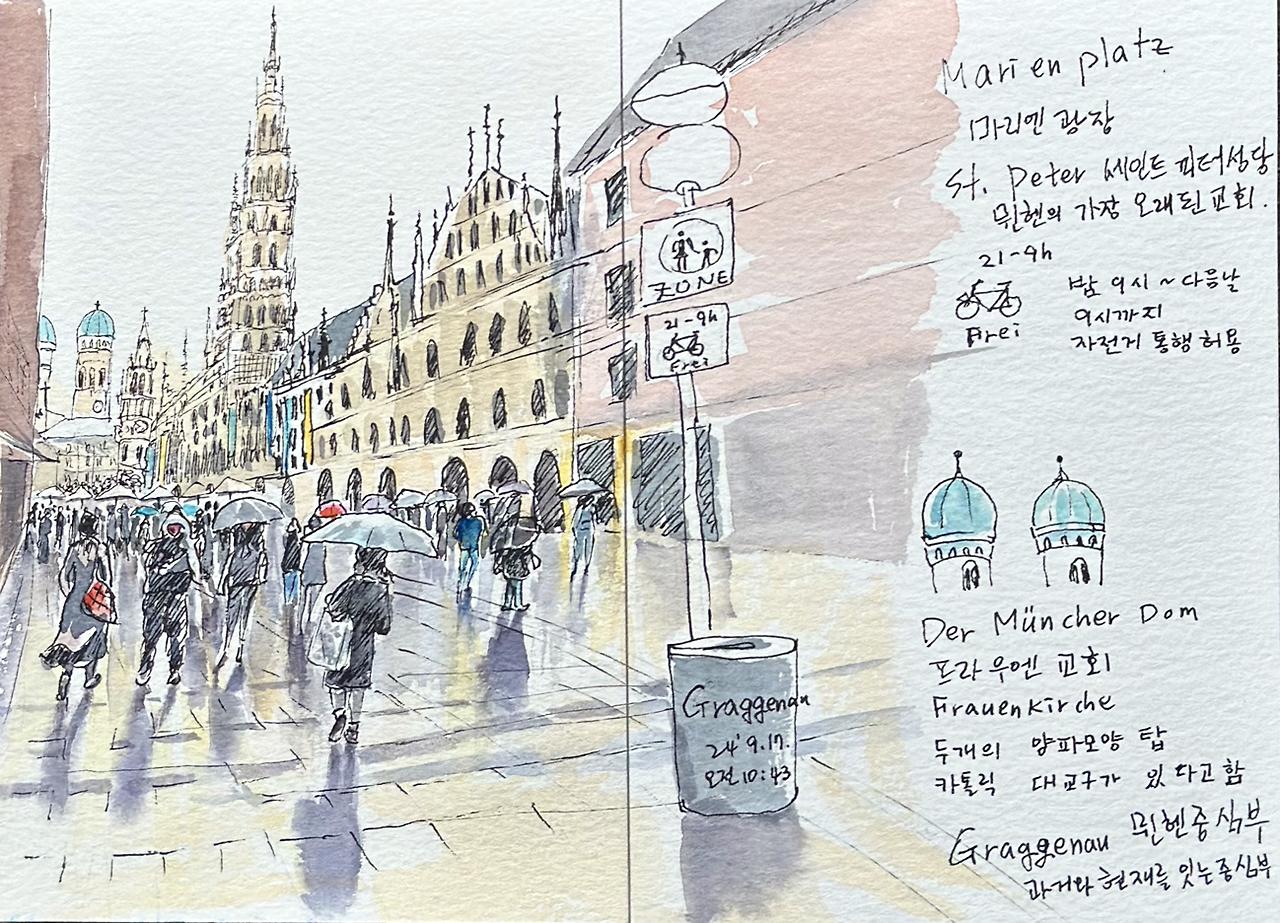 ZONE
21-9h
Frei
Graggenau
24' 9.17.
오전 10:43
Marienplatz
마리엔 광장
St. Peter 세인트 피터성당
뮌헨의 가장 오래된 교회.
21-9h
Frei
밤 9시 ~ 다음날
9시까지
자전거 통행 허용
Der Müncher Dom
프라우엔 교회
Frauenkirche
두개의 양파모양 탑
카톨릭 대교구가 있다고 함
Graggenau 뮌헨중심부
과거와 현재를 잇는 중심부